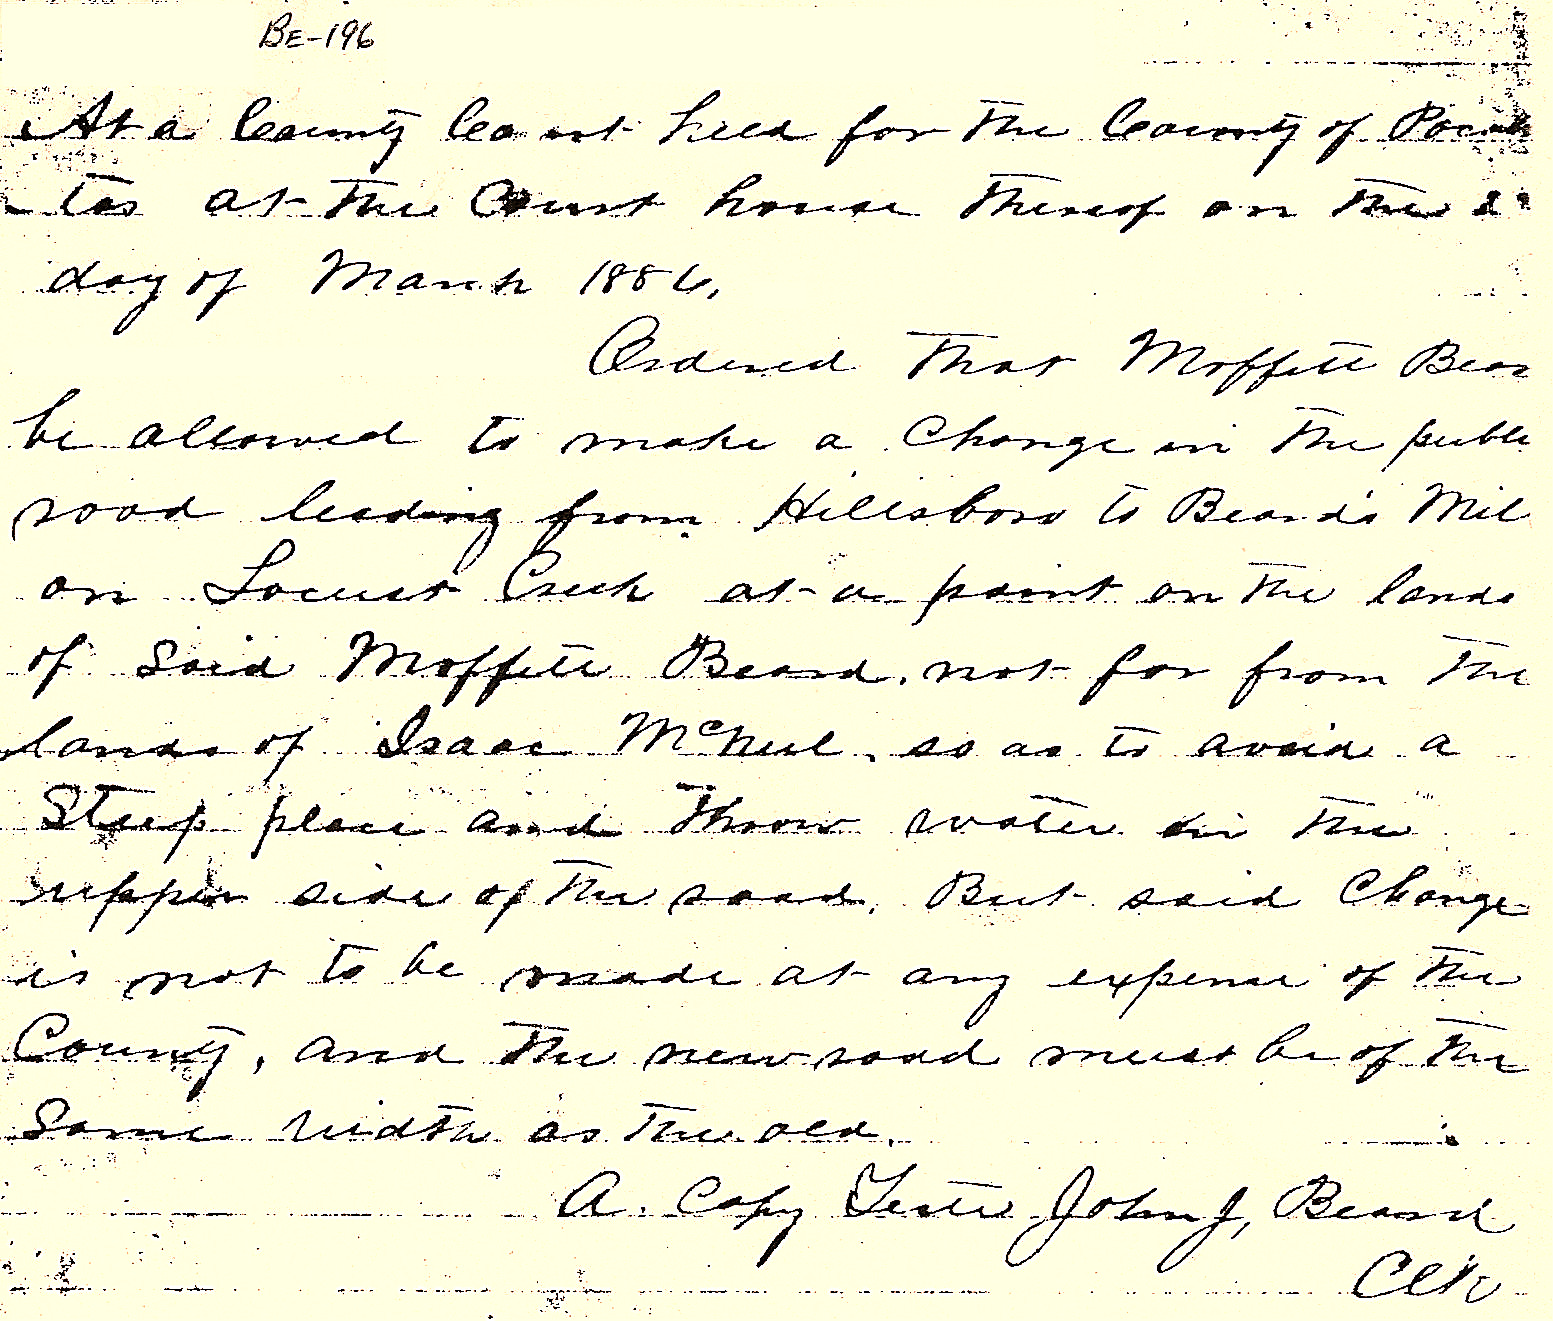 BE-196
At a County Court held for the County of Pocah
tas at the Court house thereof on the 2
day of March 1886,
Ordered that Moffett Bear
be allowed to make a Change in the publi
road leading from Hillsboro to Beard's Mil
on Locust Creek at a point on the lands
of said Moffett Beard, not far from the
lands of Isaac McNeel, so as to avoid a
Steep place and throw water in the
upper side of the road. But said Change
is not to be made at any expense of the
County, and the new road must be of the
Same width as the old.
A. Copy Teste John J, Beard
Clk